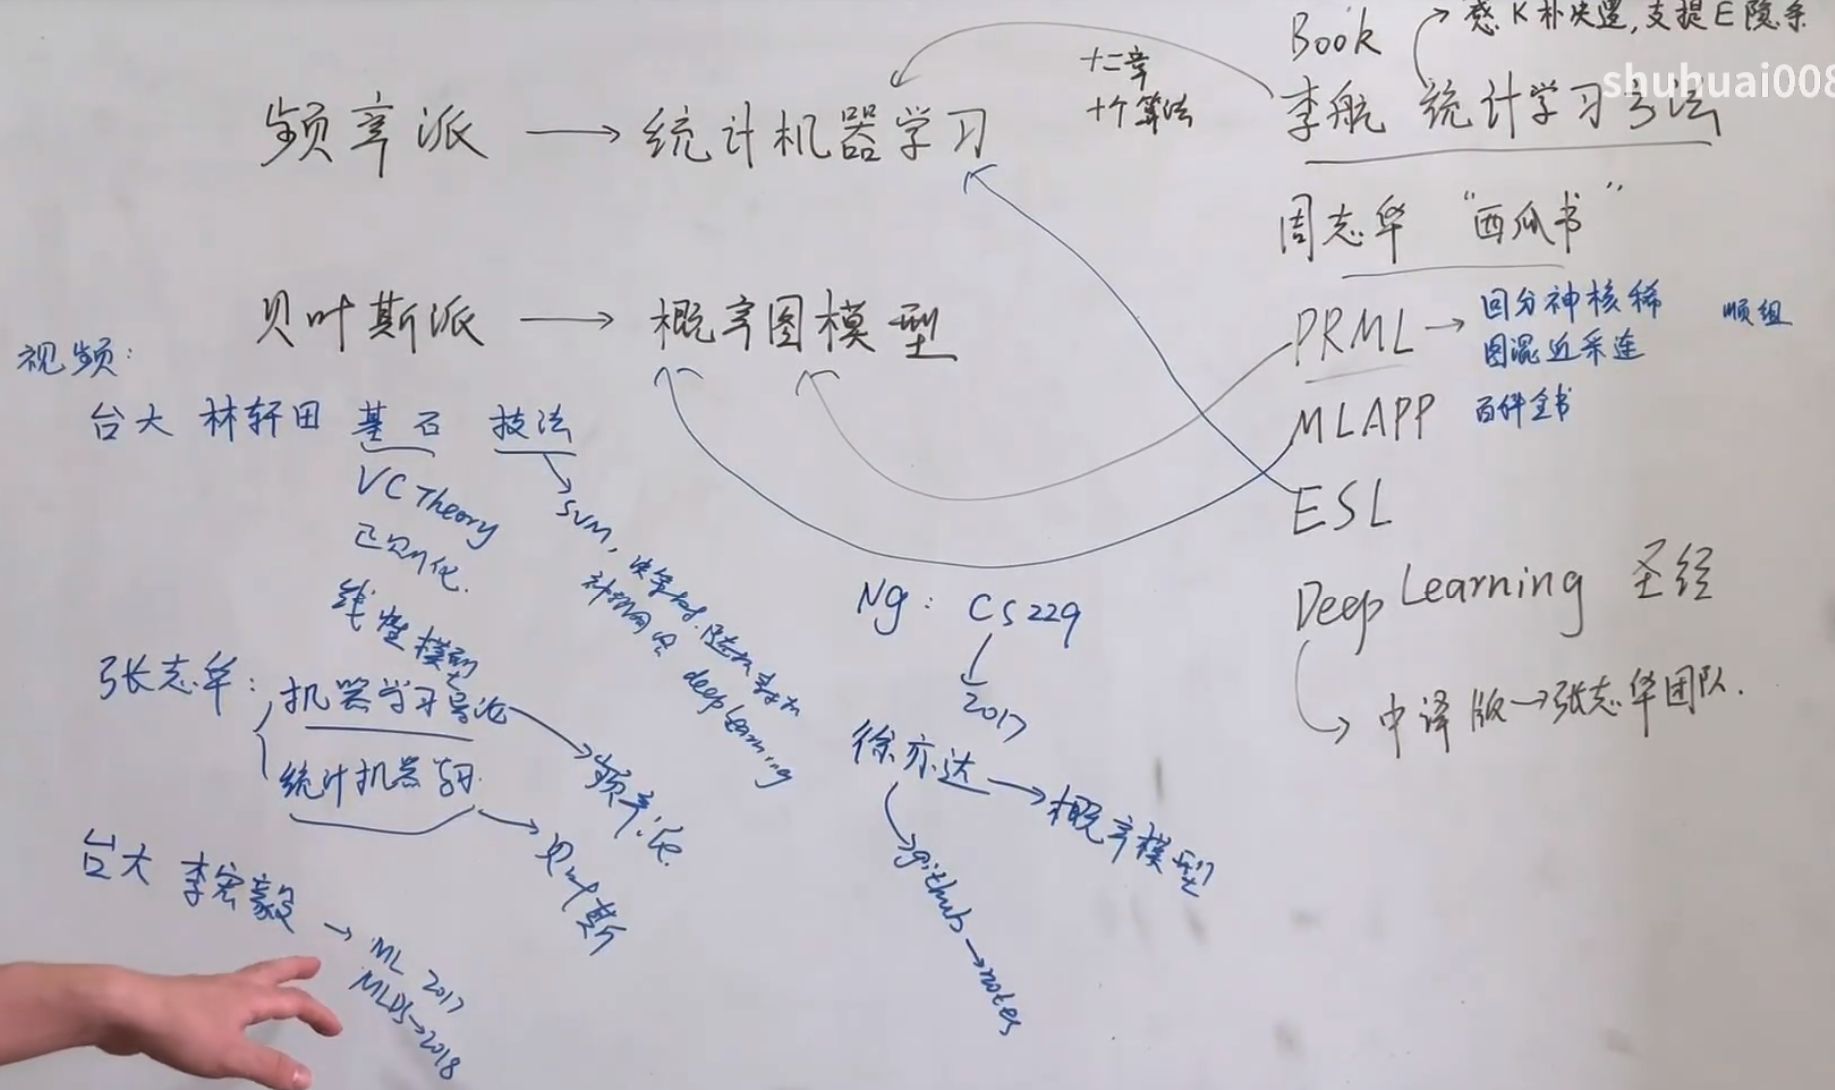 频率派 → 统计机器学习
贝叶斯派 → 概率图模型
十二章
十个算法
Book
感K朴决逻,支提E隐条
李航 统计学习方法
shuhuai008
周志华 “西瓜书”
PRML → 回分神核稀
图混近采连
顺组
MLAPP 百科全书
ESL
Deep Learning 圣经
中译版→张志华团队.
视频:
台大 林轩田 基石 技法
VC Theory
正则化.
线性模型
SVM, 决策树,
神经网络
deep learning
张志华:
机器学习导论
频率派.
统计机器学习
贝叶斯
台大 李宏毅
→ ML 2017
MLDS→2018
Ng: CS229
2017
徐亦达 → 概率模型
github→notes